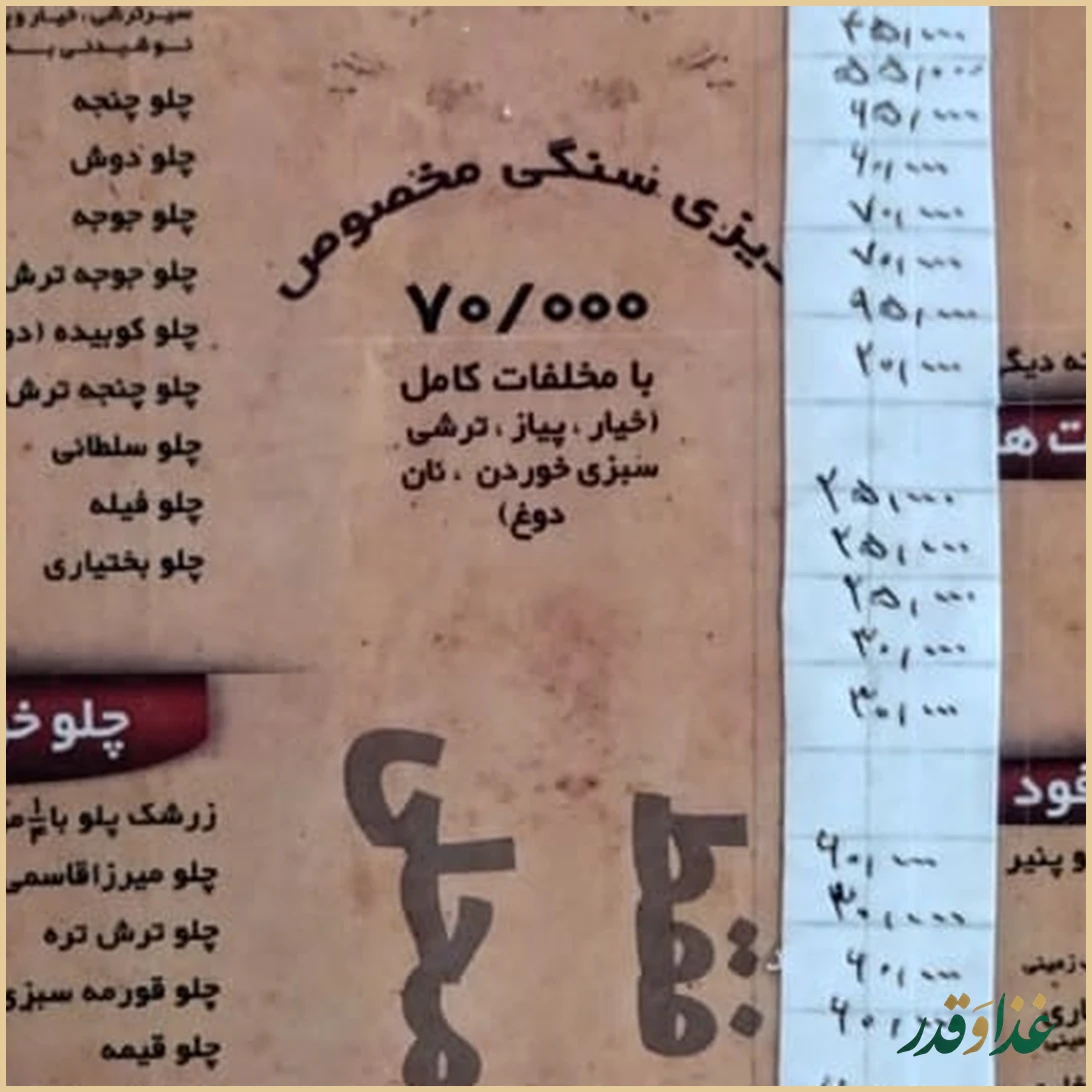 سیرترشی، خیار و
نوشیدنی به
چلو چنجه
چلو دوش
چلو جوجه
چلو جوجه ترش
چلو کوبیده (دو
چلو چنجه ترش
چلو سلطانی
چلو فیله
چلو بختیاری
چلو خ
زرشک پلو با ۱/۴
چلو میرزاقاسمی
چلو ترش تره
چلو قورمه سبزی
چلو قیمه
دیزی سنگی مخصوص
۷۰/۰۰۰
با مخلفات کامل
(خیار، پیاز، ترشی
سبزی خوردن، نان
دوغ)
فقط
محلی
۴۵,۰۰۰
۵۵,۰۰۰
۶۵,۰۰۰
۶۰,۰۰۰
۷۰,۰۰۰
۷۰,۰۰۰
۹۵,۰۰۰
۲۰,۰۰۰
۲۵,۰۰۰
۲۵,۰۰۰
۲۵,۰۰۰
۳۰,۰۰۰
۳۰,۰۰۰
۶۰,۰۰۰
۶۰,۰۰۰
۶۰,۰۰۰
ته دیگ
ت ها
فود
و پنیر
زمینی
غذا و قدر